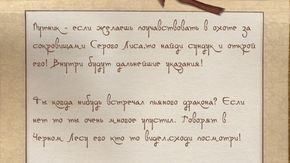 Путник - если желаешь поучаствовать в охоте за
сокровищами Серого Лиса,то найди сундук и открой
его! Внутри будут дальнейшие указания!
Ты когда нибудь встречал пьяного дракона? Если
нет то ты очень многое упустил. Говорят в
Черном Лесу его кто то видел.сходи посмотри!